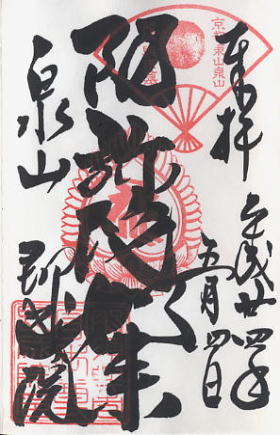 奉拝
平成廿四年
五月四日
阿弥陀如来
泉山
即成院
京都東山泉山